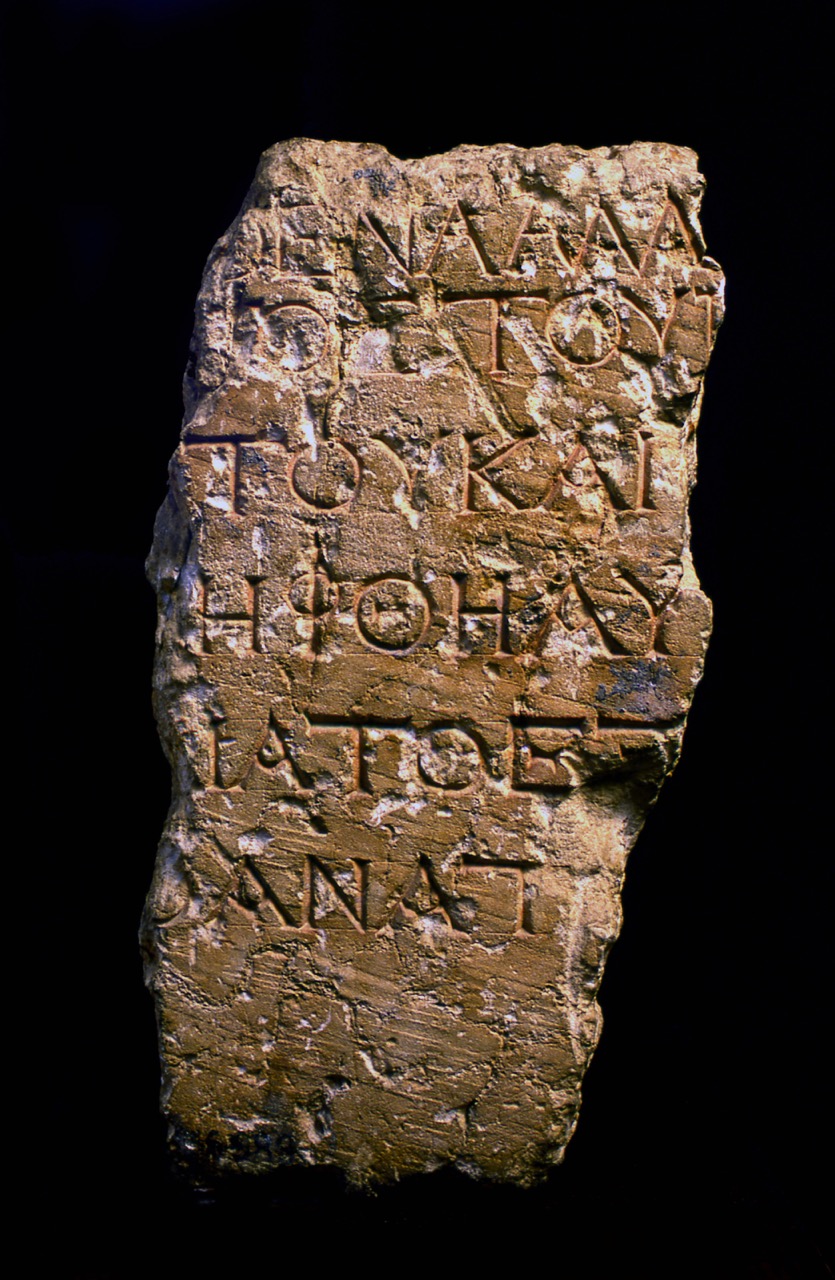 ΕΝΑΑΛΛ
ΤΟΣΤΟΥΠ
ΤΟΥΚΑΙ
ΗΦΘΗΑΥ
ΙΑΤΟΕΞ
ΘΑΝΑΤ